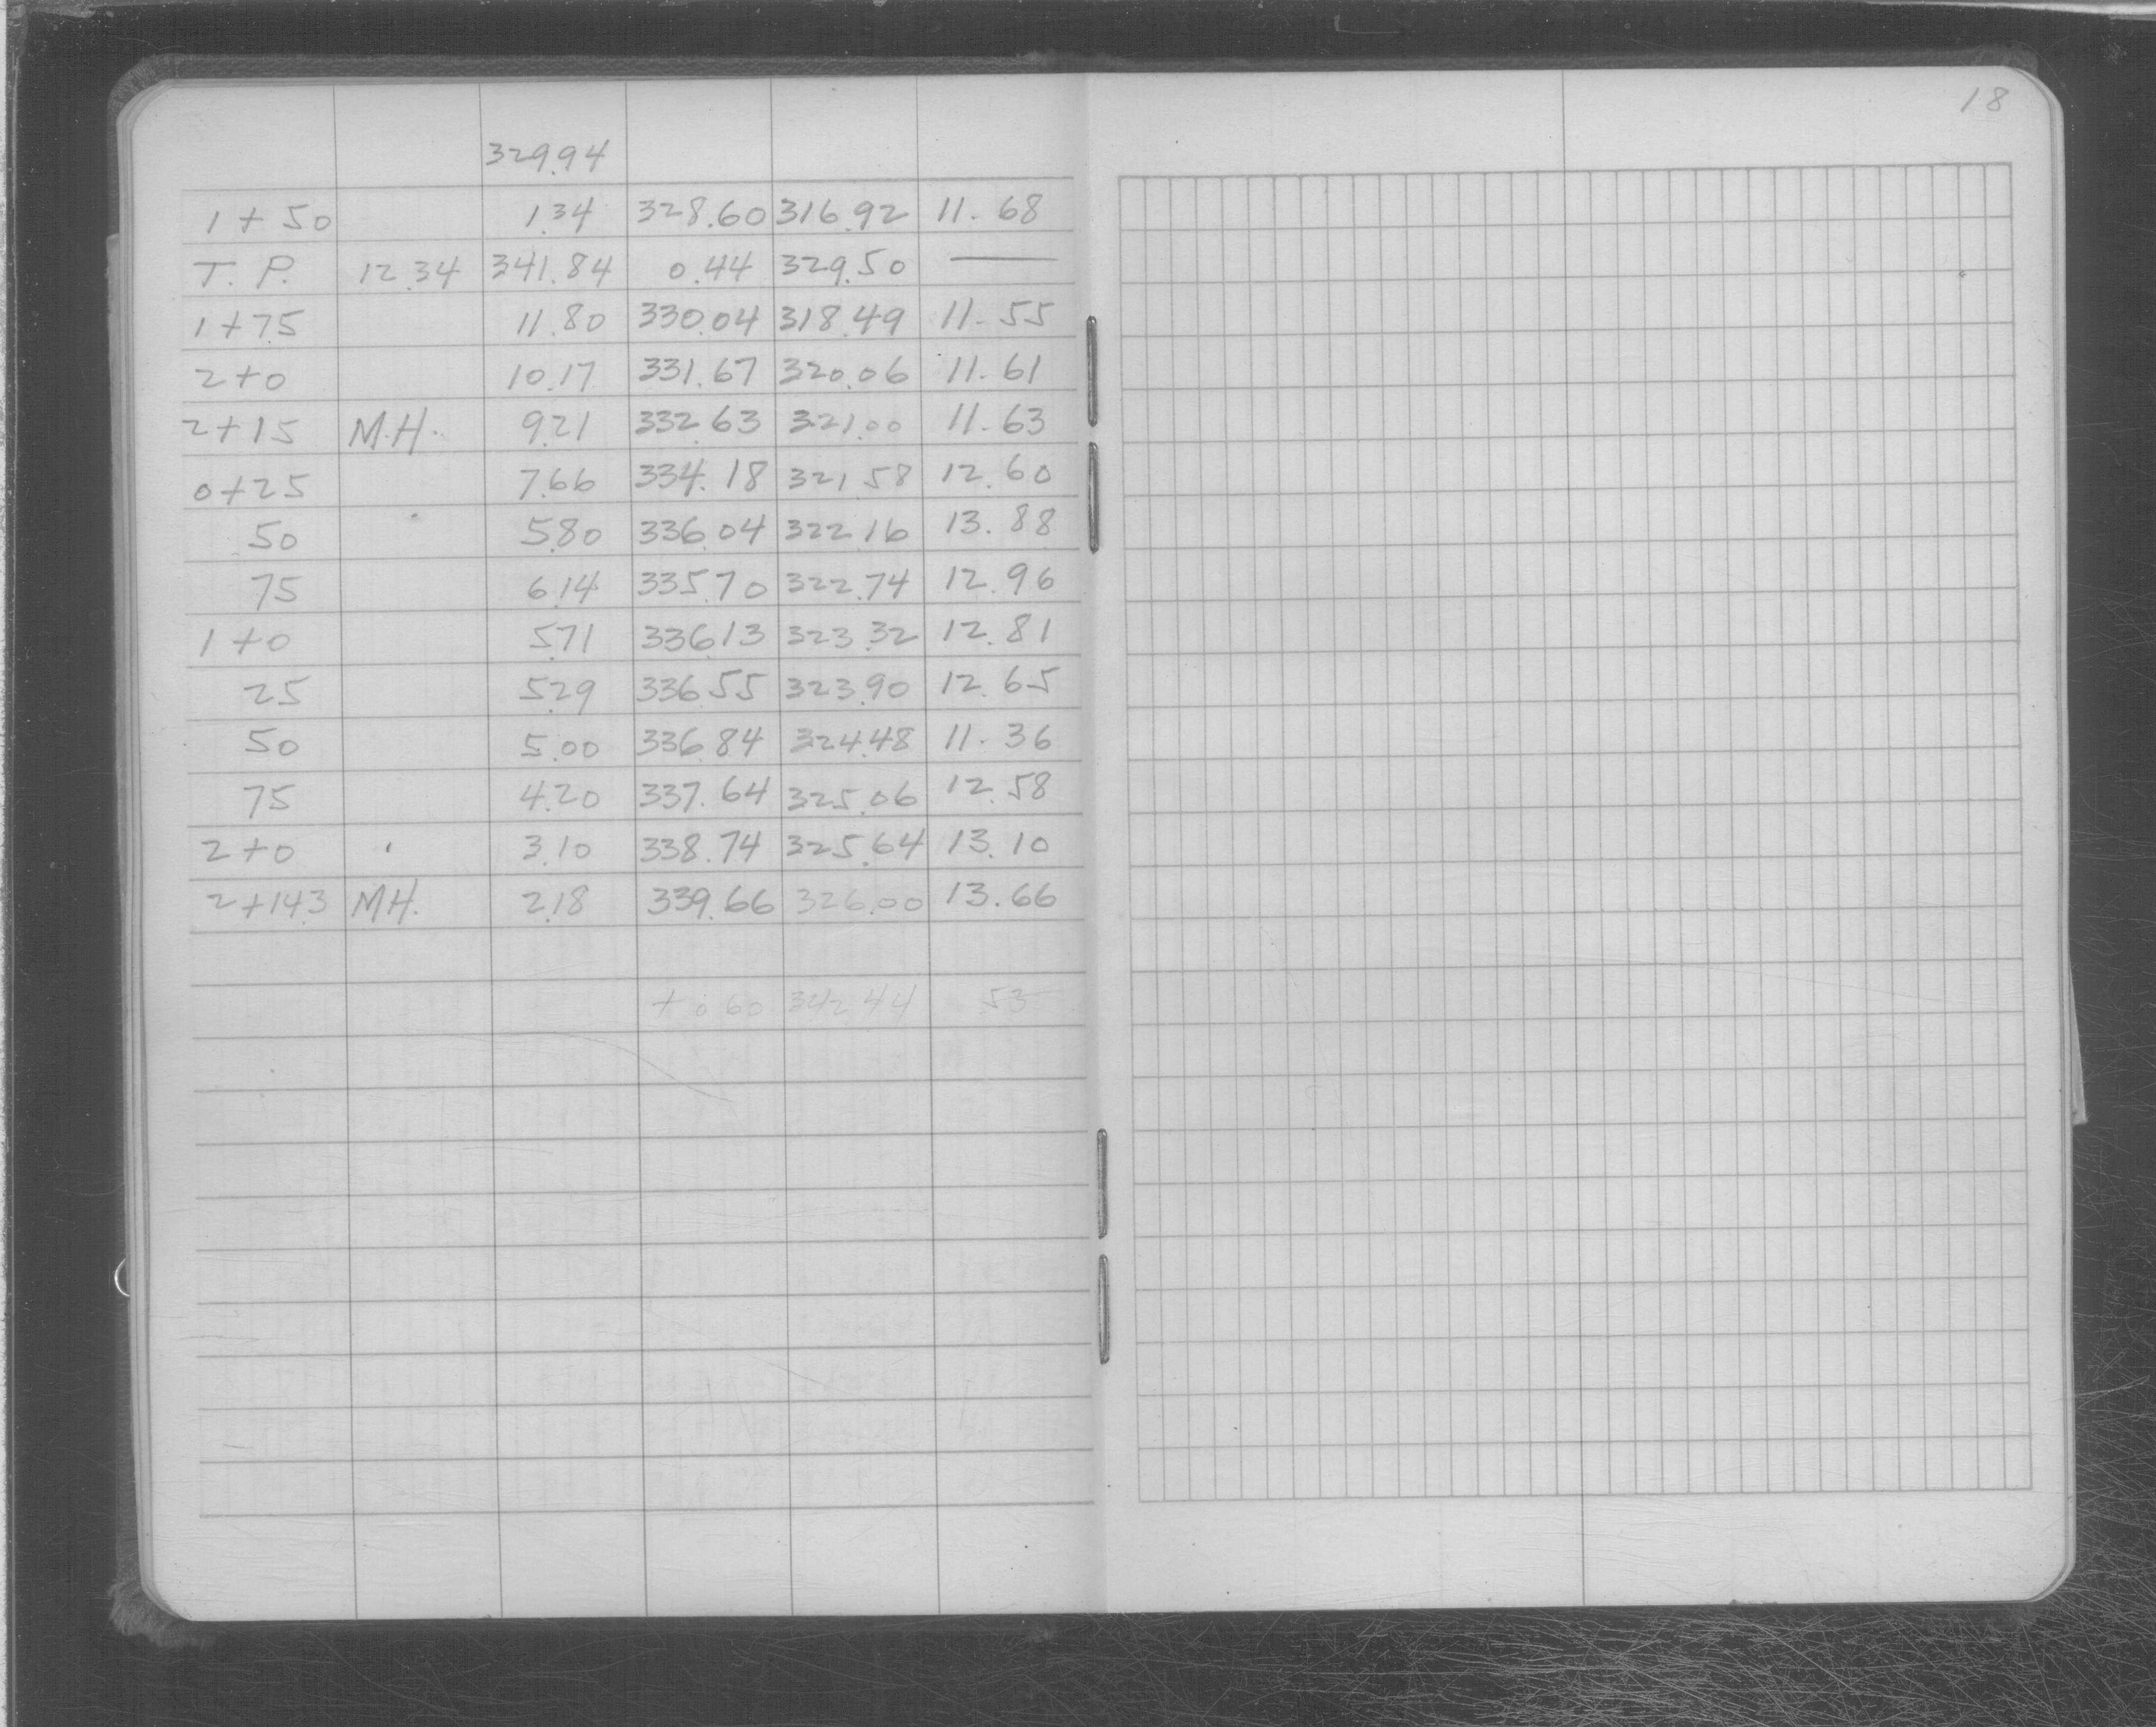 18
329.94
1+50 1.34 328.60 316.92 11.68
T.P. 12.34 341.84 0.44 329.50 —
1+75 11.80 330.04 318.49 11.55
2+0 10.17 331.67 320.06 11.61
2+15 M.H. 9.21 332.63 321.00 11.63
0+25 7.66 334.18 321.58 12.60
50 5.80 336.04 322.16 13.88
75 6.14 335.70 322.74 12.96
1+0 5.71 336.13 323.32 12.81
25 5.29 336.55 323.90 12.65
50 5.00 336.84 324.48 11.36
75 4.20 337.64 325.06 12.58
2+0 3.10 338.74 325.64 13.10
2+14.3 M.H. 2.18 339.66 326.00 13.66
+0.60 342.44 53